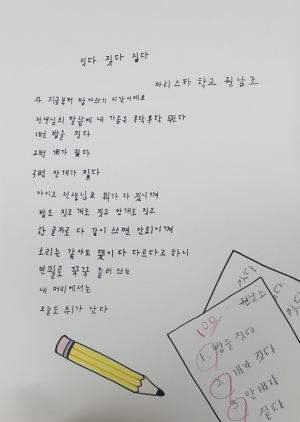 짓다 짖다 짙다
마리스타 학교 원남조
자 지금부터 받아쓰기 시간이에요
선생님의 말씀에 내 가슴은 후닥후닥 뛴다
1번 밥을 짓다
2번 개가 짖다
3번 안개가 짙다
아이고 선생님요 뭐가 다 짓닝껴
밥도 짓고 개도 짓고 안개도 짓고
한 글자로 다 같이 쓰면 안되닝껴
소리는 같아도 뜻이 다 다르다고 하니
연필로 꾹꾹 눌러 쓰는
내 머리에서는
오늘도 쥐가 난다
짓다
원남조
100
1. 밥을 짓다
2. 개가 짖다
3. 안개가
짙다